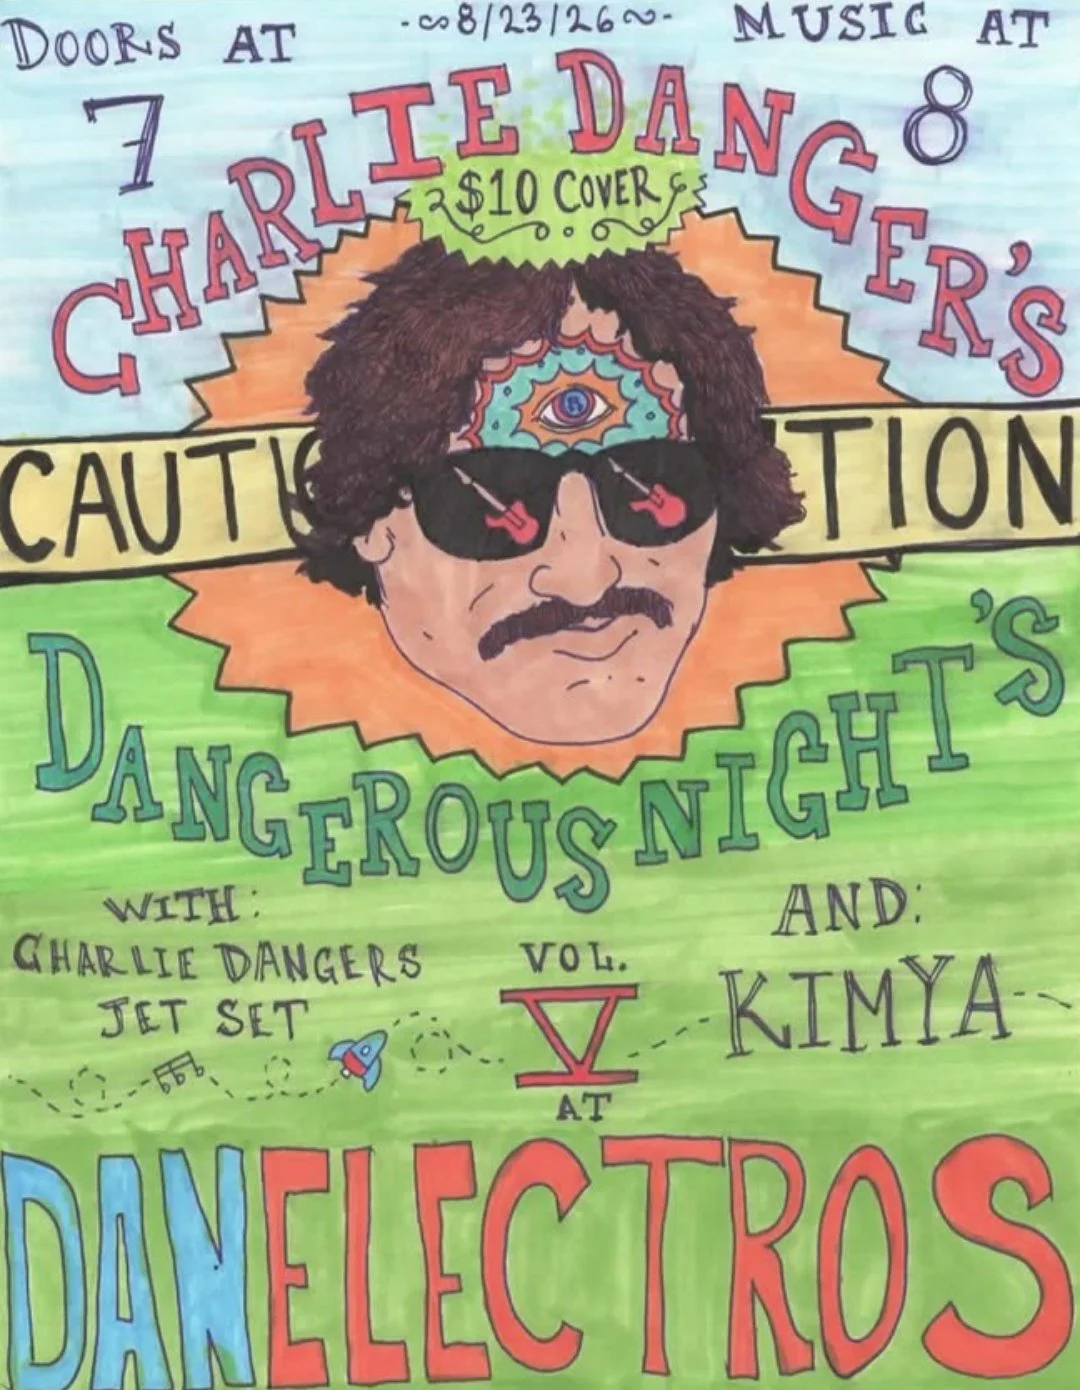 DOORS AT
7
8/23/26
MUSIC AT
8
CHARLIE DANGER'S
$10 COVER
CAUTIO
TION
DANGEROUS NIGHT'S
WITH:
CHARLIE DANGERS
JET SET
VOL.
V
AT
AND:
KIMYA
DANELECTROS